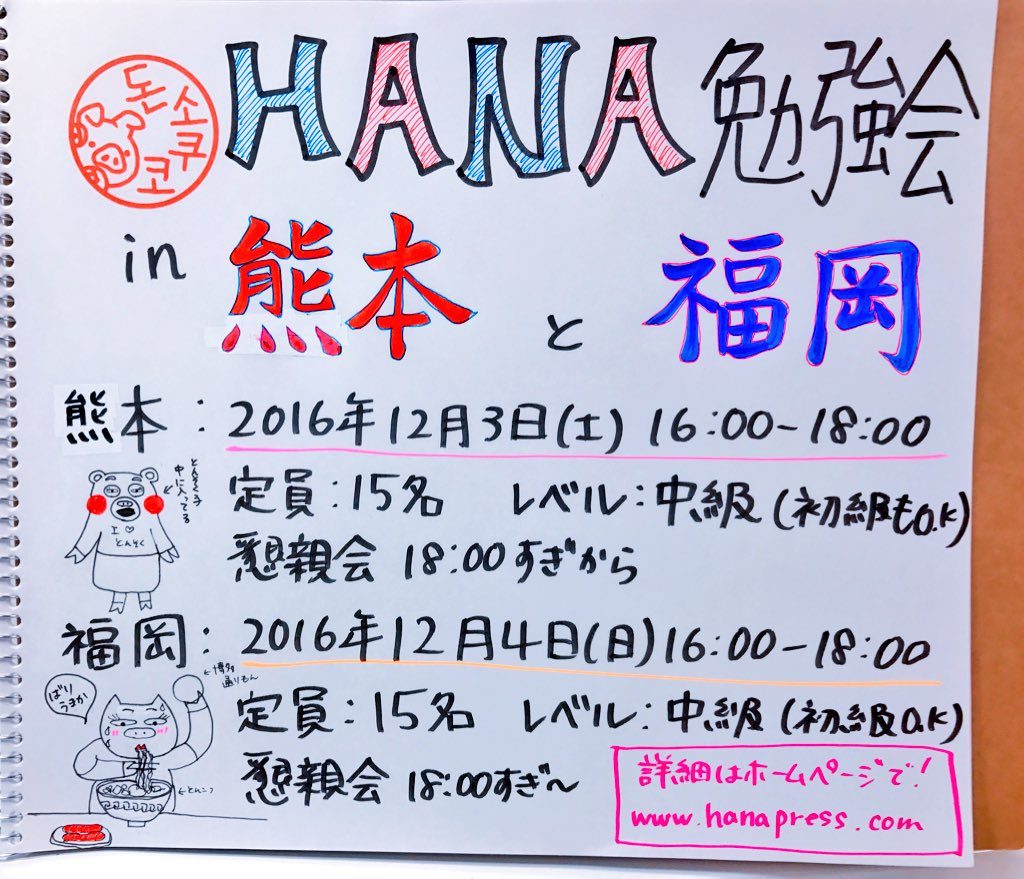 돈소쿠코
HANA勉強会
in 熊本 と 福岡
熊本：2016年12月3日(土) 16:00-18:00
定員：15名 レベル：中級(初級もO.K)
懇親会 18:00すぎから
とんそく子
中に入ってる
I ♡
とんそく
福岡：2016年12月4日(日) 16:00-18:00
←博多
通りもん
ばり
うまか
定員：15名 レベル：中級(初級O.K)
懇親会 18:00すぎ〜
←とんこつ
詳細はホームページで！
www.hanapress.com